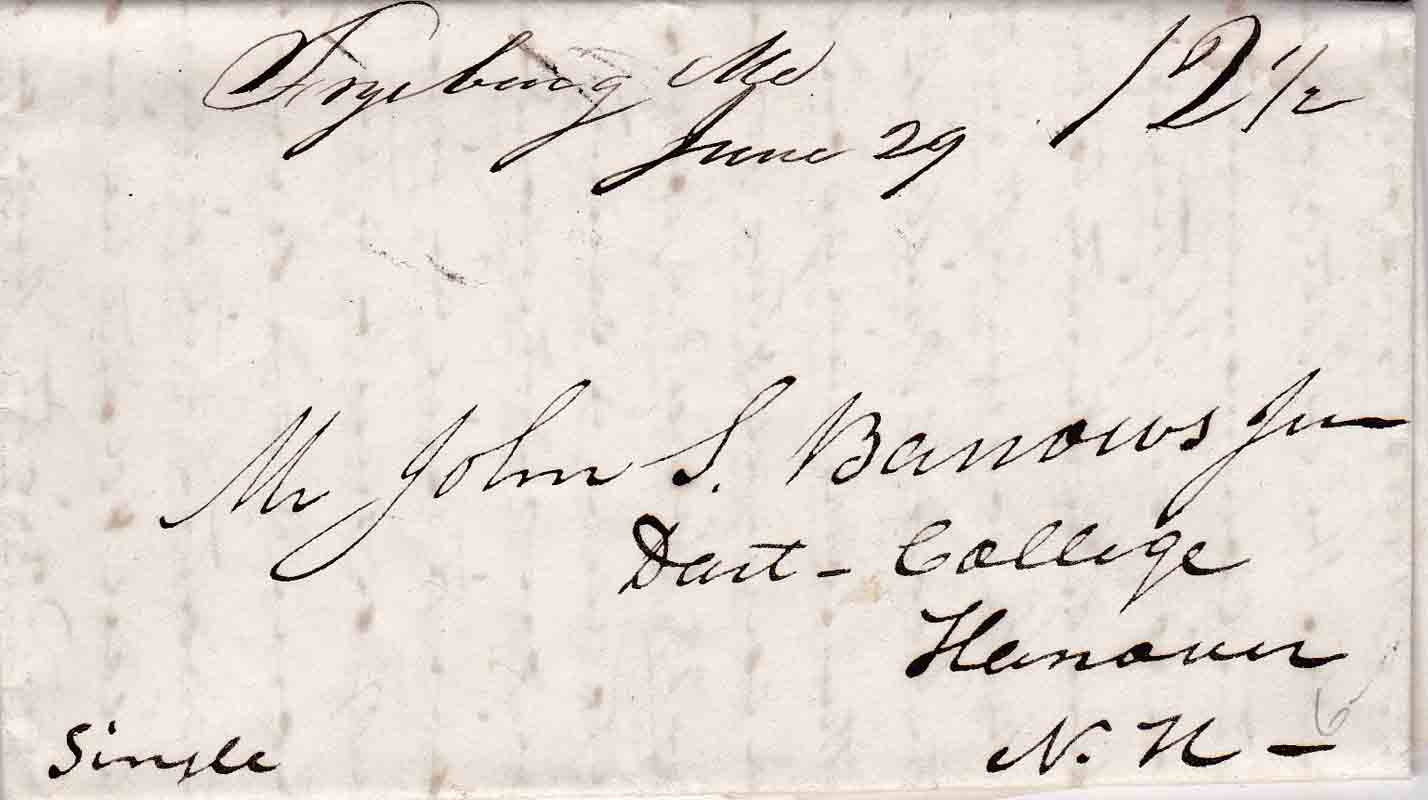 Fryeburg Me
June 29
12 1/2
Mr John S. Barrows Jr
Dart - College
Hanover
N. H -
Single
6